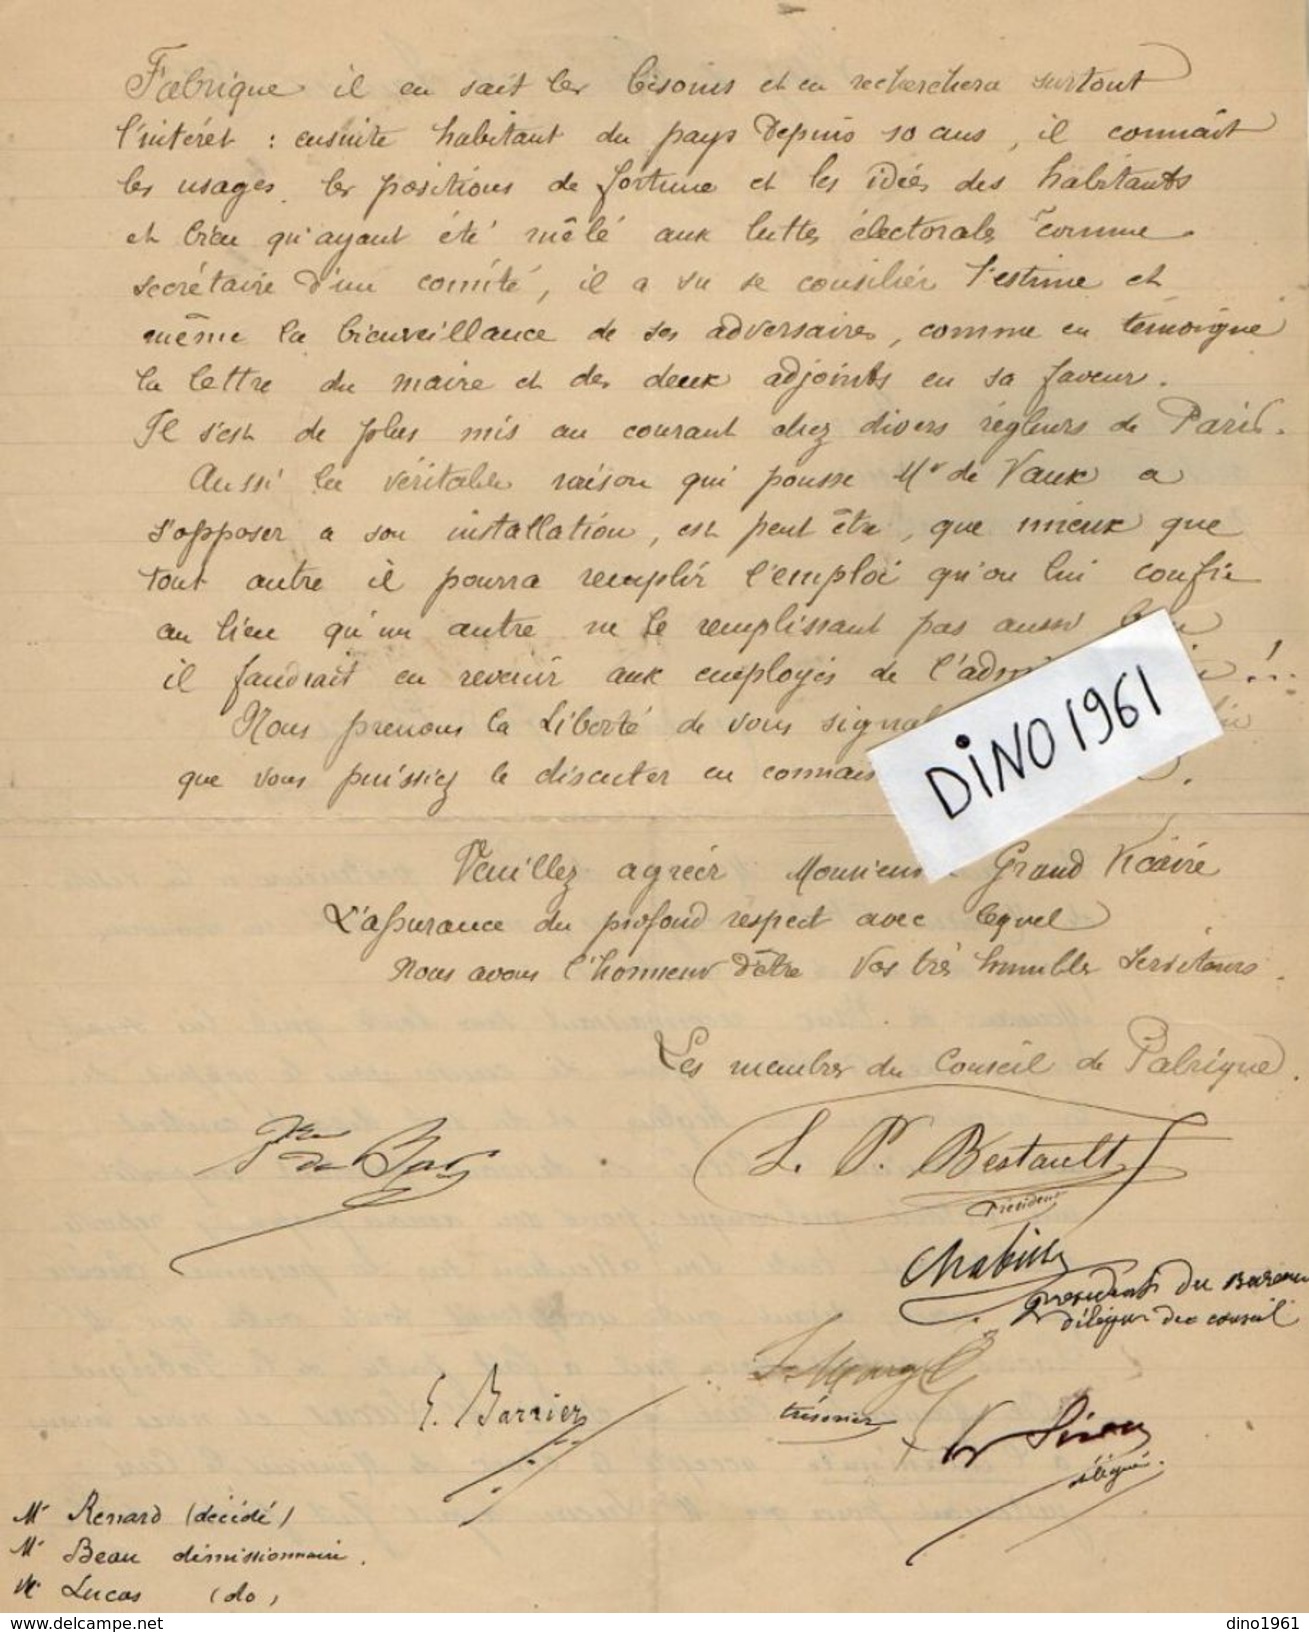 Fabrique il en sait les besoins et en recherchera surtout
l'intérêt : ensuite habitant du pays Depuis 10 ans, il connaît
les usages. les positions de fortune et les idées des habitants
et bien qu'ayant été mêlé aux luttes électorales comme
secrétaire d'un comité, il a su se consilier l'estime et
même la bienveillance de ses adversaires, comme en témoigne
la lettre du maire et des deux adjoints en sa faveur.
Il s'est de plus mis au courant chez divers régleurs de Paris.
Aussi la véritable raison qui pousse Mr de Vaux a
s'opposer a son installation, est peut être, que mieux que
tout autre il pourra remplir l'emploi qu'on lui confie
au lieu qu'un autre ne le remplissant pas aussi
il faudrait en revenir aux employés de l'adm !..
Nous prenons la Liberté de vous signal
que vous puissiez le discuter en connais
DiNO 1961
Veuillez agréer Monsieur Grand Vicaire
L'assurance du profond respect avec lequel
Nous avons l'honneur d'être Vos très humbles Serviteurs.
Les membres du Conseil de Fabrique.
L. P. Bestault
Président
Chabille
président du Bureau
délégué du conseil
trésorier
E. Barrier
délégué.
Mr Renard (décédé)
Mr Beau démissionnaire.
Mr Lucas (do)
www.delcampe.net
dino1961